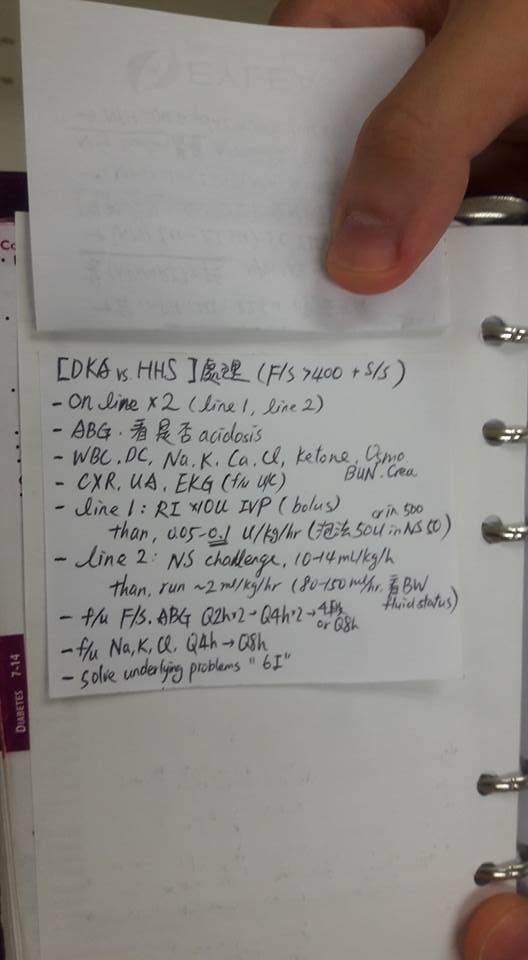 EYLEA
[DKA vs. HHS] 處理 (F/S >400 + S/S)
- On line x2 (line 1, line 2)
- ABG. 看是否 acidosis
- WBC. DC, Na. K. Ca. Cl, ketone, Osmo.
BUN. Crea
- CXR, UA, EKG (f/u U/C)
- line 1: RI x10U IVP (bolus)
or in 500
than, 0.05-0.1 U/kg/hr (泡法 50U in NS 50)
- line 2: NS challenge, 10-14 mL/kg/h
than, run ~2 ml/kg/hr (80-150 ml/hr. 看BW
fluid status)
- f/u F/S. ABG Q2h*2 → Q4h*2 →
or Q8h
- f/u Na, K, Cl, Q4h → Q8h
- solve underlying problems "6I"
DIABETES 7-14
Co